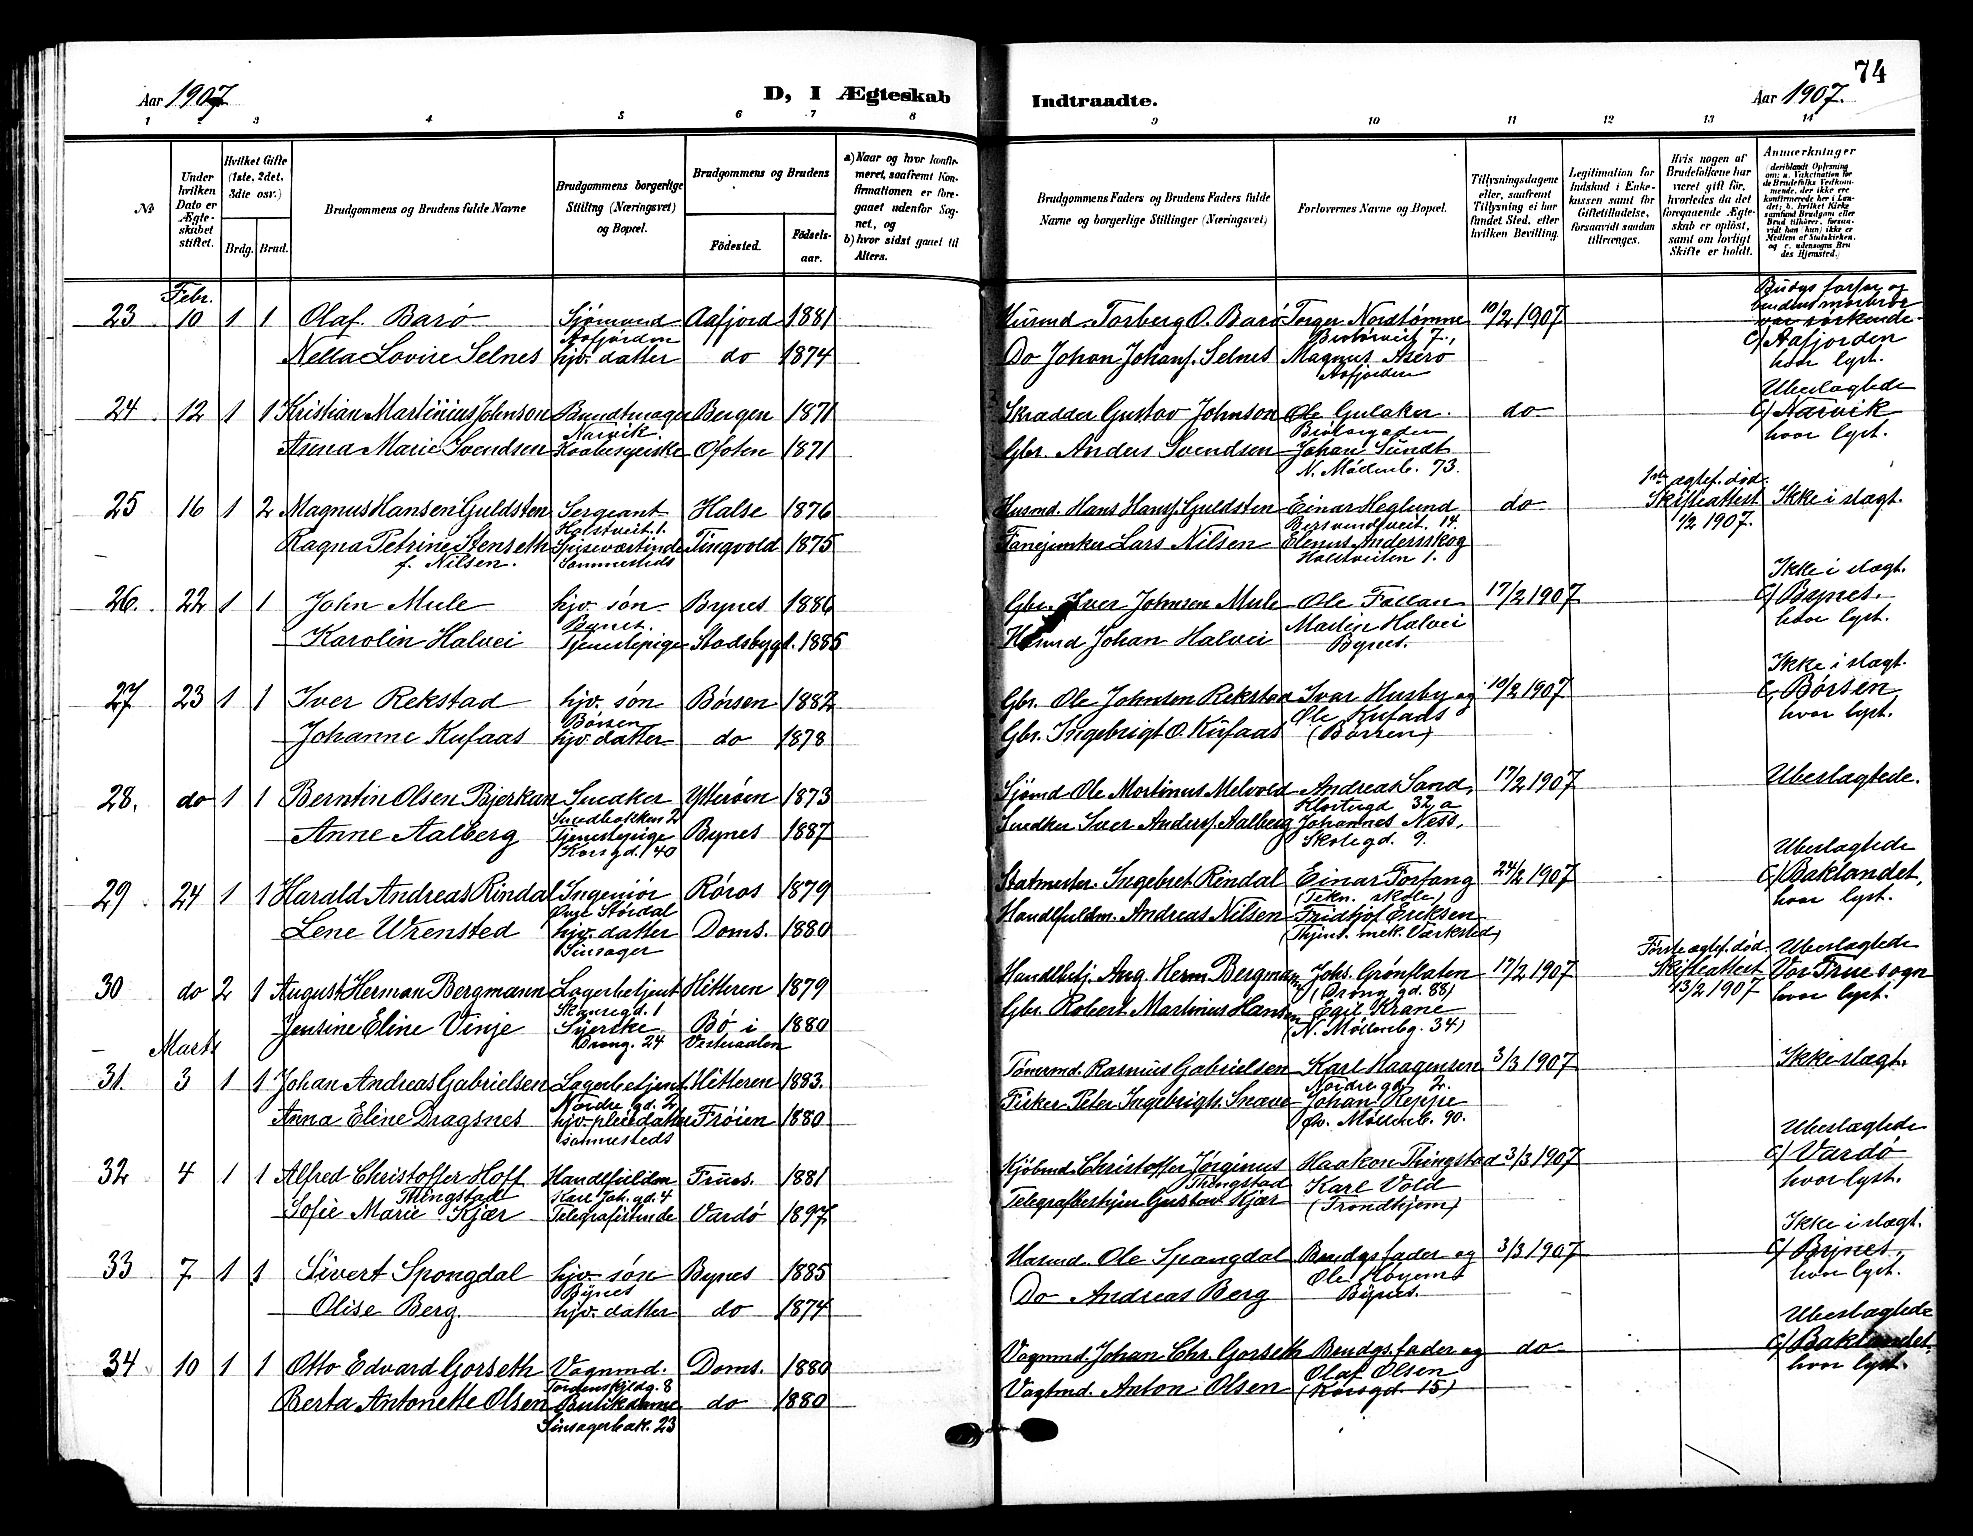 74
Aar 1907
D, I Ægteskab
Indtraadte.
Aar 1907.
1 2 3 4 5 6 7 8 9 10 11 12 13 14
No
Under hvilken Dato er Ægteskabet stiftet.
Hvilket Gifte (1ste, 2det, 3die osv.)
Brdg. Brud.
Brudgommens og Brudens fulde Navne
Brudgommens borgerlige Stilling (Næringsvei) og Bopæl.
Brudgommens og Brudens
Fødested.
Fødselsaar.
a) Naar og hvor konfirmeret, saafremt Konfirmationen er foregaaet udenfor Sognet, og
b) hvor sidst gaaet til Alters.
Brudgommens Faders og Brudens Faders fulde Navne og borgerlige Stillinger (Næringsvei)
Forlovernes Navne og Bopæl.
Tillysningsdagene eller, saafremt Tillysning ei har fundet Sted, efter hvilken Bevilling.
Legitimation for Indskud i Enkekassen samt for Giftetilladelse, forsaavidt saadan tiltrænges.
Hvis nogen af Brudefolkene har været gift før, hvorledes da det foregaaende Ægteskab er opløst, samt om lovligt Skifte er holdt.
Anmærkninger
Febr.
23 10 1 1 Olaf Barø Sjømand Aafjord 1881 Husmd. Torberg O. Barø Torger Nordtømme 10/2 1907
Aafjorden
Nella Lovise Selnes hjv. datter do 1874 Do Johan Johans. Selnes Magnus Aserø
Aafjorden
Brudgs farfar og
brudens morbror
var søskende.
C/ Aafjorden
hvor lyst.
24 12 1 1 Kristian Martinius Johnson Bundtmager Bergen 1871 Skrædder Gustav Johnson Ole Gulaker do
Narvik.
Asena Marie Svendsen Ofoten 1871 Gbr. Anders Svendsen Johan Sundt
N. Møllenb. 73.
Ubeslægtede
C/ Narvik
hvor lyst.
25 16 1 2 Magnus Hansen Guldsten Sergeant Halse 1876 Husmd. Hans Hans. Guldsten Einar Heglund do
Holstveit. 1. 14.
Ragna Petrine Stenseth Spiseværtinde Tingvold 1875 Fanejunker Lars Nilsen
f. Nilsen. Sammesteds Holstveiten 1.
1ste ægtef. død.
Skifteattest
1/2 1907.
Ikke i slægt.
26. 22 1 1 John Mule hjv. søn Bynes 1886 Gbr. Iver Johnsen Mule Ole Fallan 17/2 1907
Bynes.
Karolin Halvei Tjenestepige Stadsbygd. 1885 Husmd Johan Halvei Martin Halvei
Bynes.
Ikke i slægt.
C/ Bynes.
hvor lyst.
27 23 1 1 Iver Rekstad hjv. søn Børsen 1882 Gbr. Ole Johnsen Rekstad Ivar Husby og 10/2 1907
Børsen
Johanne Kufaas hjv. datter do 1878 Gbr. Ingebrigt O. Kufaas Ole Kufaas
(Børsen)
Ikke i slægt.
C/ Børsen
hvor lyst.
28. do 1 1 Berntin Olsen Bjerkan Snedker Ytterøen 1873 Sjømd Ole Mortinus Melvold Andreas Sand, 17/2 1907
Smedbakken 2 Klostergd 32 a
Anne Aalberg Tjenestepige Bynes 1887 Snedker Iver Anders. Aalberg Johannes Ness,
Korsgd. 40 Skolegd. 9.
Ubeslægtede.
29 24 1 1 Harald Andreas Rindal Ingeniør Røros 1879 Statmester. Ingebret Rindal Einar Forfang 24/2 1907
Øvre Størdal (Tekn. skole)
Lene Wrensted hjv. datter Doms. 1880 Handlfuldm. Andreas Nilsen Fridtjof Eriksen
Sinsager (Thjms. mek. Værksted)
Ubeslægtede
C/ Baklandet,
hvor lyst.
30 do 2 1 August Herman Bergmann Lagerbetjent Hitteren 1879 Handlbetj. Aug. Herm. Bergmann Johs. Grønflaten 17/2 1907
Skansegd. 1 (Dronn. gd. 88)
Jensine Eline Vinje Syerske Bø i 1880 Gbr. Robert Martinus Hansen Egil Krane
Dronn. 24 Vesteraalen (N. Møllenbg. 34)
Første ægtef. død
Skifteattest
13/2 1907
Ubeslægtede
Vor Frue sogn
hvor lyst.
Marts
31. 3 1 1 Johan Andreas Gabrielsen Lagerbetjent Hitteren 1883. Tømermd. Rasmus Gabrielsen Karl Haagensen 3/3 1907
Nordre gd. 2 Nordre gd. 2.
Anna Eline Dragsnes hjv. pleiedatter Frøien 1880 Fisker Peter Ingebrigts. Johan Reppe
sammesteds Øv. Møllenb. 90.
Ikke i slægt.
32 4 1 1 Alfred Christoffer Hoff Handlsfuldm Frues. 1881 Kjøbmd. Christoffer Jørginus Haakon Thingstad 3/3 1907
Thingstad Karl Joh. gd. 4 Thingstad Karl Vold
Sofie Marie Kjær Telegrafistinde Vardø 1897 Telegrafbestyrer Gustav Kjær (Trondhjem)
Ubeslægtede
C/ Vardø
hvor lyst.
33 7 1 1 Sivert Spongdal hjv. søn Bynes 1885 Husmd. Ole Spongdal Brudgs. fader og 3/3 1907
Bynes
Olise Berg. hjv. datter do 1874 Do Andreas Berg
Bynes.
Ikke i slægt.
C/ Bynes,
hvor lyst.
34 10 1 1 Otto Edvard Gorseth Vognmd. Doms. 1880 Vognmd. Johan Chr. Gorseth Brudgs. fader og do
Tordenskjldg. 8 Olaf Olsen
Berta Antonette Olsen Butikdame do 1880 Vagtmd. Anton Olsen (Korsgd. 15)
Sinsagerbak. 23
Ubeslægtede
C/ Baklandet,
hvor lyst.